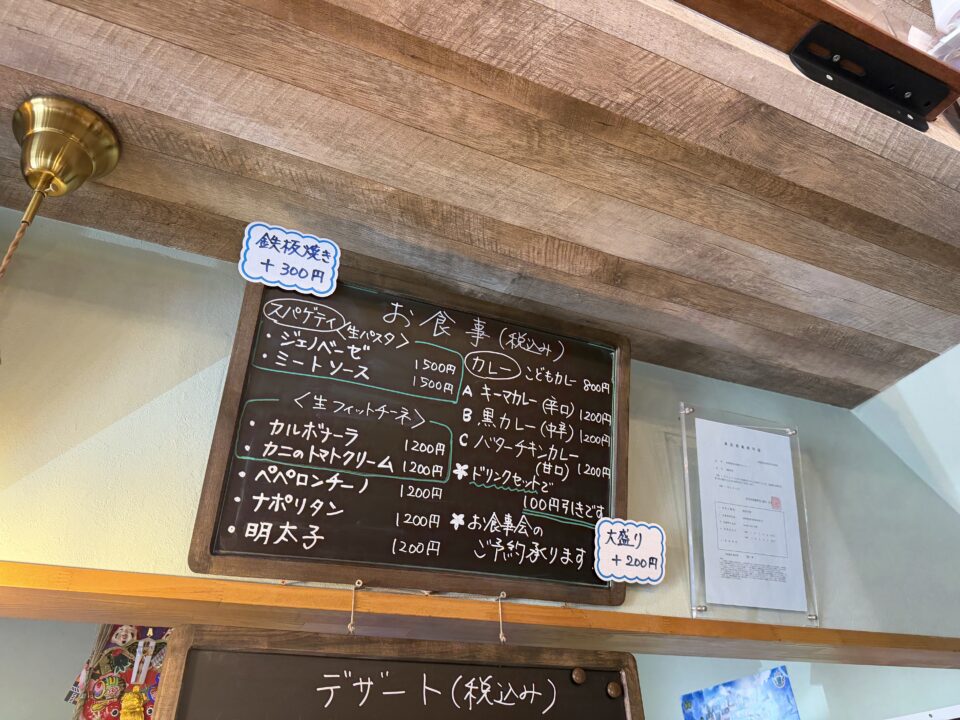 鉄板焼き
+300円
お食事(税込み)
スパゲティ
〈生パスタ〉
・ジェノベーゼ 1500円
・ミートソース 1500円
〈生フィットチーネ〉
・カルボナーラ 1200円
・カニのトマトクリーム 1200円
・ペペロンチーノ 1200円
・ナポリタン 1200円
・明太子 1200円
カレー
こどもカレー 800円
A キーマカレー(辛口) 1200円
B 黒カレー(中辛) 1200円
C バターチキンカレー
(甘口) 1200円
*ドリンクセットで
100円引きです
*お食事会の
ご予約承ります
大盛り
+200円
デザート(税込み)